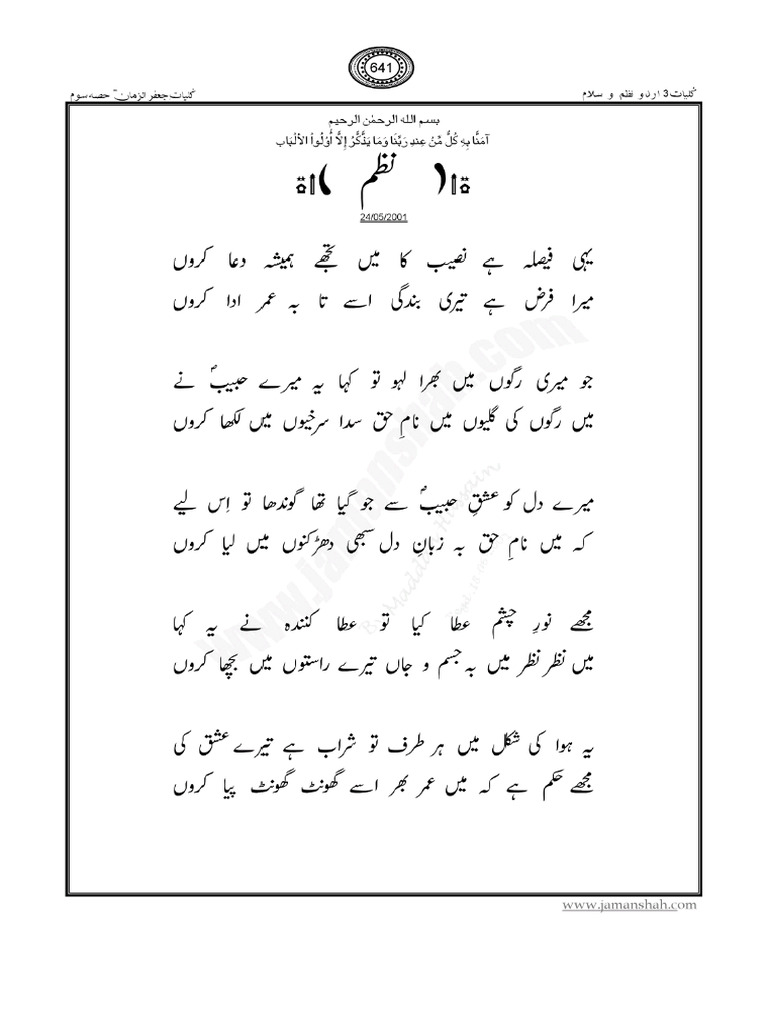 641
کلیات 3 اردو نظم و سلام
کلیات جعفر الزمان حصہ سوم
بسم الله الرحمٰن الرحیم
آمَنَّا بِهِ كُلٌّ مِّنْ عِندِ رَبِّنَا وَمَا يَذَّكَّرُ إِلاَّ أُوْلُواْ الألْبَاب
نظم
24/05/2001
یہی فیصلہ ہے نصیب کا میں تجھے ہمیشہ دعا کروں
میرا فرض ہے تیری بندگی اسے تا بہ عمر ادا کروں
جو میری رگوں میں بھرا لہو تو کہا یہ میرے حبیبؐ نے
میں رگوں کی گلیوں میں نامِ حق سدا سرخیوں میں لکھا کروں
میرے دل کو عشقِ حبیبؐ سے جو گیا تھا گوندھا تو اِس لیے
کہ میں نامِ حق بہ زبانِ دل سبھی دھڑکنوں میں لیا کروں
مجھے نورِ چشم عطا کیا تو عطا کنندہ نے یہ کہا
میں نظر نظر میں بہ جسم و جاں تیرے راستوں میں بچھا کروں
یہ ہوا کی شکل میں ہر طرف تو شراب ہے تیرے عشق کی
مجھے حکم ہے کہ میں عمر بھر اسے گھونٹ گھونٹ پیا کروں
www.jamanshah.com
www.jamanshah.com